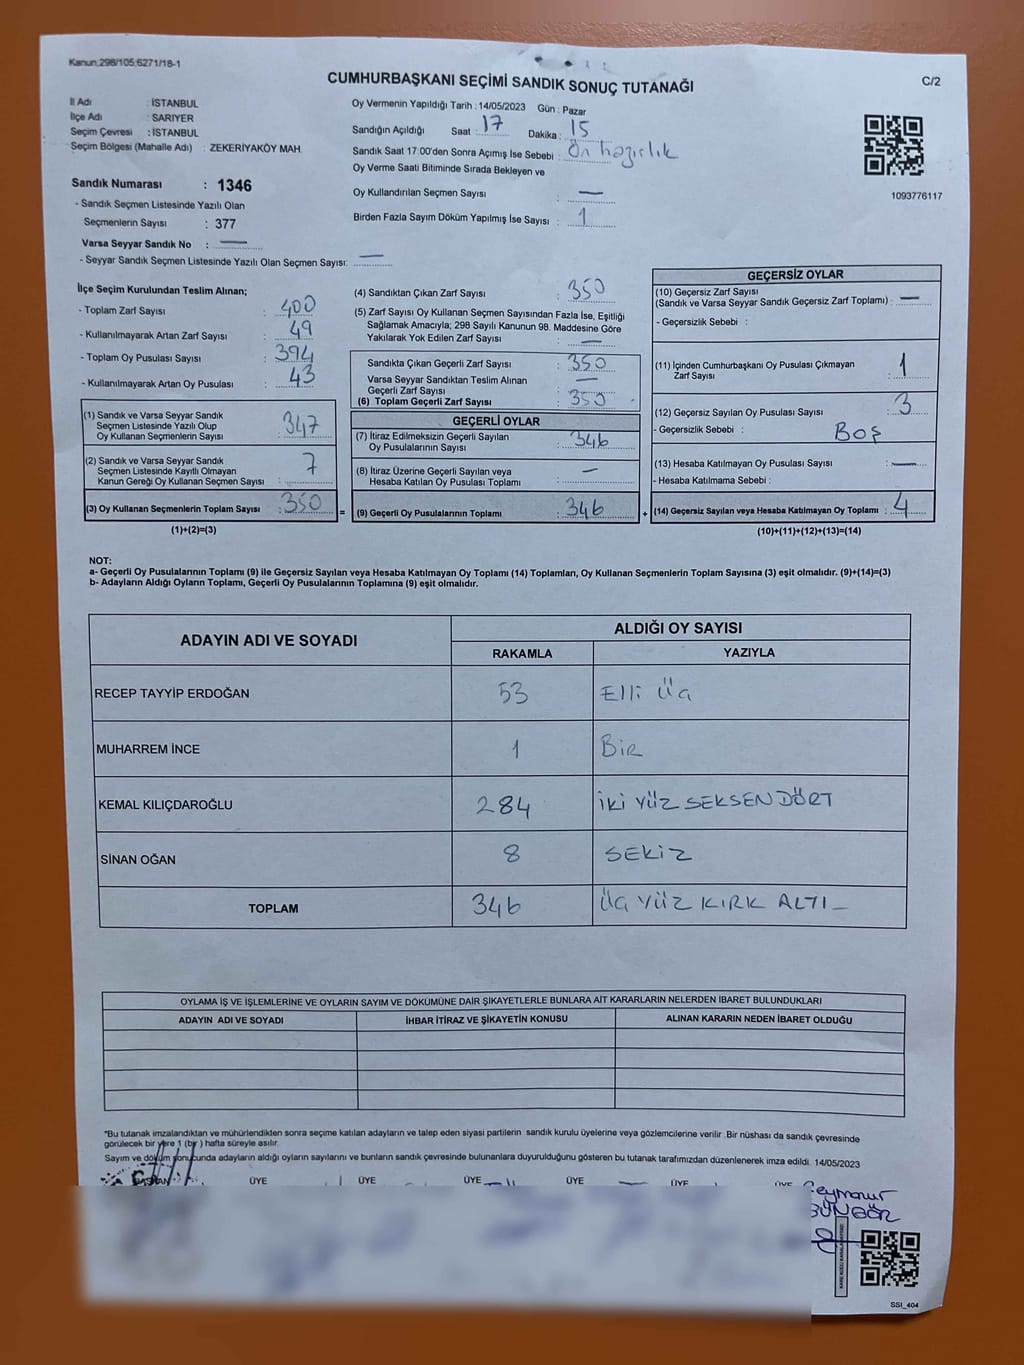 Kanun;298/105;6271/18-1
CUMHURBAŞKANI SEÇİMİ SANDIK SONUÇ TUTANAĞI
C/2
İl Adı : İSTANBUL
İlçe Adı : SARIYER
Seçim Çevresi : İSTANBUL
Seçim Bölgesi (Mahalle Adı) : ZEKERİYAKÖY MAH.
Sandık Numarası : 1346
- Sandık Seçmen Listesinde Yazılı Olan
Seçmenlerin Sayısı : 377
Varsa Seyyar Sandık No : —
- Seyyar Sandık Seçmen Listesinde Yazılı Olan Seçmen Sayısı: —
Oy Vermenin Yapıldığı Tarih : 14/05/2023 Gün : Pazar
Sandığın Açıldığı Saat : 17 Dakika : 15
Sandık Saat 17:00'den Sonra Açımış İse Sebebi : Ön hazırlık
Oy Verme Saati Bitiminde Sırada Bekleyen ve
Oy Kullandırılan Seçmen Sayısı : —
Birden Fazla Sayım Döküm Yapılmış İse Sayısı : 1
1093776117
İlçe Seçim Kurulundan Teslim Alınan;
- Toplam Zarf Sayısı : 400
- Kullanılmayarak Artan Zarf Sayısı : 49
- Toplam Oy Pusulası Sayısı : 394
- Kullanılmayarak Artan Oy Pusulası : 43
(1) Sandık ve Varsa Seyyar Sandık
Seçmen Listesinde Yazılı Olup
Oy Kullanan Seçmenlerin Sayısı : 347
(2) Sandık ve Varsa Seyyar Sandık
Seçmen Listesinde Kayıtlı Olmayan
Kanun Gereği Oy Kullanan Seçmen Sayısı : 7
(3) Oy Kullanan Seçmenlerin Toplam Sayısı : 350
(1)+(2)=(3)
=
(4) Sandıktan Çıkan Zarf Sayısı : 350
(5) Zarf Sayısı Oy Kullanan Seçmen Sayısından Fazla İse, Eşitliği
Sağlamak Amacıyla; 298 Sayılı Kanunun 98. Maddesine Göre
Yakılarak Yok Edilen Zarf Sayısı : —
Sandıkta Çıkan Geçerli Zarf Sayısı : 350
Varsa Seyyar Sandıktan Teslim Alınan
Geçerli Zarf Sayısı : —
(6) Toplam Geçerli Zarf Sayısı : 350
GEÇERLİ OYLAR
(7) İtiraz Edilmeksizin Geçerli Sayılan
Oy Pusulalarının Sayısı : 346
(8) İtiraz Üzerine Geçerli Sayılan veya
Hesaba Katılan Oy Pusulası Toplamı : —
(9) Geçerli Oy Pusulalarının Toplamı : 346
+
GEÇERSİZ OYLAR
(10) Geçersiz Zarf Sayısı
(Sandık ve Varsa Seyyar Sandık Geçersiz Zarf Toplamı) : —
- Geçersizlik Sebebi :
(11) İçinden Cumhurbaşkanı Oy Pusulası Çıkmayan
Zarf Sayısı : 1
(12) Geçersiz Sayılan Oy Pusulası Sayısı : 3
- Geçersizlik Sebebi : BOŞ
(13) Hesaba Katılmayan Oy Pusulası Sayısı : —
- Hesaba Katılmama Sebebi :
(14) Geçersiz Sayılan veya Hesaba Katılmayan Oy Toplamı : 4
(10)+(11)+(12)+(13)=(14)
NOT:
a- Geçerli Oy Pusulalarının Toplamı (9) ile Geçersiz Sayılan veya Hesaba Katılmayan Oy Toplamı (14) Toplamları, Oy Kullanan Seçmenlerin Toplam Sayısına (3) eşit olmalıdır. (9)+(14)=(3)
b- Adayların Aldığı Oyların Toplamı, Geçerli Oy Pusulalarının Toplamına (9) eşit olmalıdır.
ADAYIN ADI VE SOYADI
ALDIĞI OY SAYISI
RAKAMLA YAZIYLA
RECEP TAYYİP ERDOĞAN 53 Elli Üç
MUHARREM İNCE 1 BİR
KEMAL KILIÇDAROĞLU 284 İKİ YÜZ SEKSEN DÖRT
SİNAN OĞAN 8 SEKİZ
TOPLAM 346 ÜÇ YÜZ KIRK ALTI
OYLAMA İŞ VE İŞLEMLERİNE VE OYLARIN SAYIM VE DÖKÜMÜNE DAİR ŞİKAYETLERLE BUNLARA AİT KARARLARIN NELERDEN İBARET BULUNDUKLARI
ADAYIN ADI VE SOYADI İHBAR İTİRAZ VE ŞİKAYETİN KONUSU ALINAN KARARIN NEDEN İBARET OLDUĞU
*Bu tutanak imzalandıktan ve mühürlendikten sonra seçime katılan adayların ve talep eden siyasi partilerin sandık kurulu üyelerine veya gözlemcilerine verilir .Bir nüshası da sandık çevresinde
görülecek bir yere 1 (bir ) hafta süreyle asılır.
Sayım ve döküm sonucunda adayların aldığı oyların sayılarını ve bunların sandık çevresinde bulunanlara duyurulduğunu gösteren bu tutanak tarafımızdan düzenlenerek imza edildi. 14/05/2023
BAŞKAN ÜYE ÜYE ÜYE ÜYE ÜYE ÜYE
SSI_404